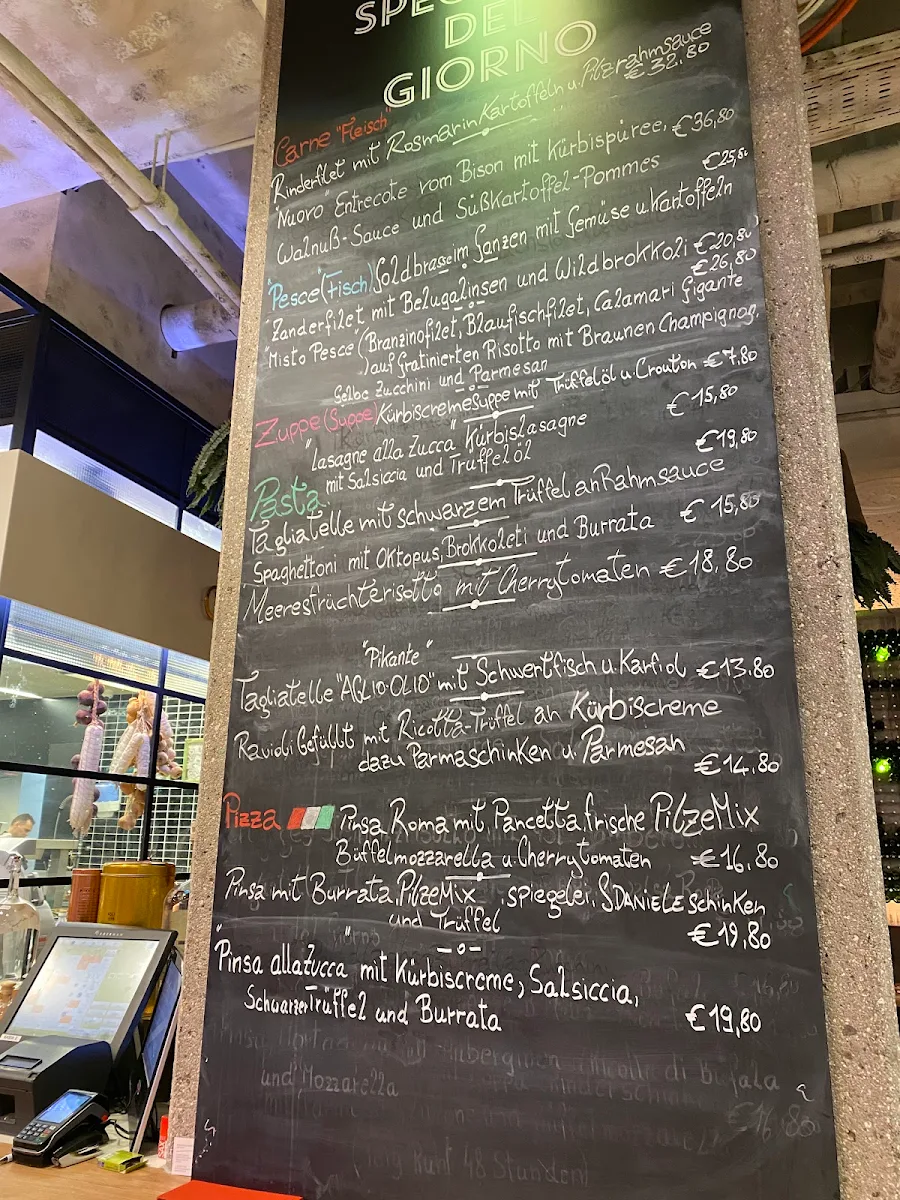 DEL
GIORNO
Carne "Fleisch"
Rinderfilet mit Rosmarin Kartoffeln u. Pilzrahmsauce
€ 32,80
"Nuovo" Entrecote vom Bison mit Kürbispüree, €36,80
Walnuß-Sauce und Süßkartoffel-Pommes
€25,80
"Pesce" (Fisch) Goldbrasse im Ganzen mit Gemüse u Kartoffeln
Zanderfilet mit Belugalinsen und Wildbrokkoli €20,80
€26,80
"Misto Pesce" (Branzinofilet, Blaufischfilet, Calamari Gigante
) auf Gratinierten Risotto mit Braunen Champignog,
Gelbe Zucchini und Parmesan
Zuppe (Suppe) Kürbiscremesuppe mit Trüffelöl u. Crouton €7,80
"Lasagne alla Zucca" Kürbislasagne €15,80
mit Salsiccia und Trüffelöl
Pasta €19,80
Tagliatelle mit schwarzem Trüffel an Rahmsauce
Spaghettoni mit Oktopus, Brokkoleti und Burrata €15,80
Meeresfrüchterisotto mit Cherrytomaten €18,80
"Pikante"
Tagliatelle "AGLIO-OLIO" mit Schwertfisch u Karfiol €13,80
Ravioli Gefüllt mit Ricotta-Trüffel an Kürbiscreme
dazu Parmaschinken u. Parmesan
€14,80
Pizza Pinsa Roma mit Pancetta, frische PilzeMix
Büffelmozzarella u Cherrytomaten €16,80
Pinsa mit Burrata, PilzeMix, spiegelei, S.DANIELE schinken
und Trüffel
€19,80
"Pinsa alla Zucca" mit Kürbiscreme, Salsiccia,
Schwarzer Trüffel und Burrata €19,80
und Mozzarella
€16,80
48 Stunden